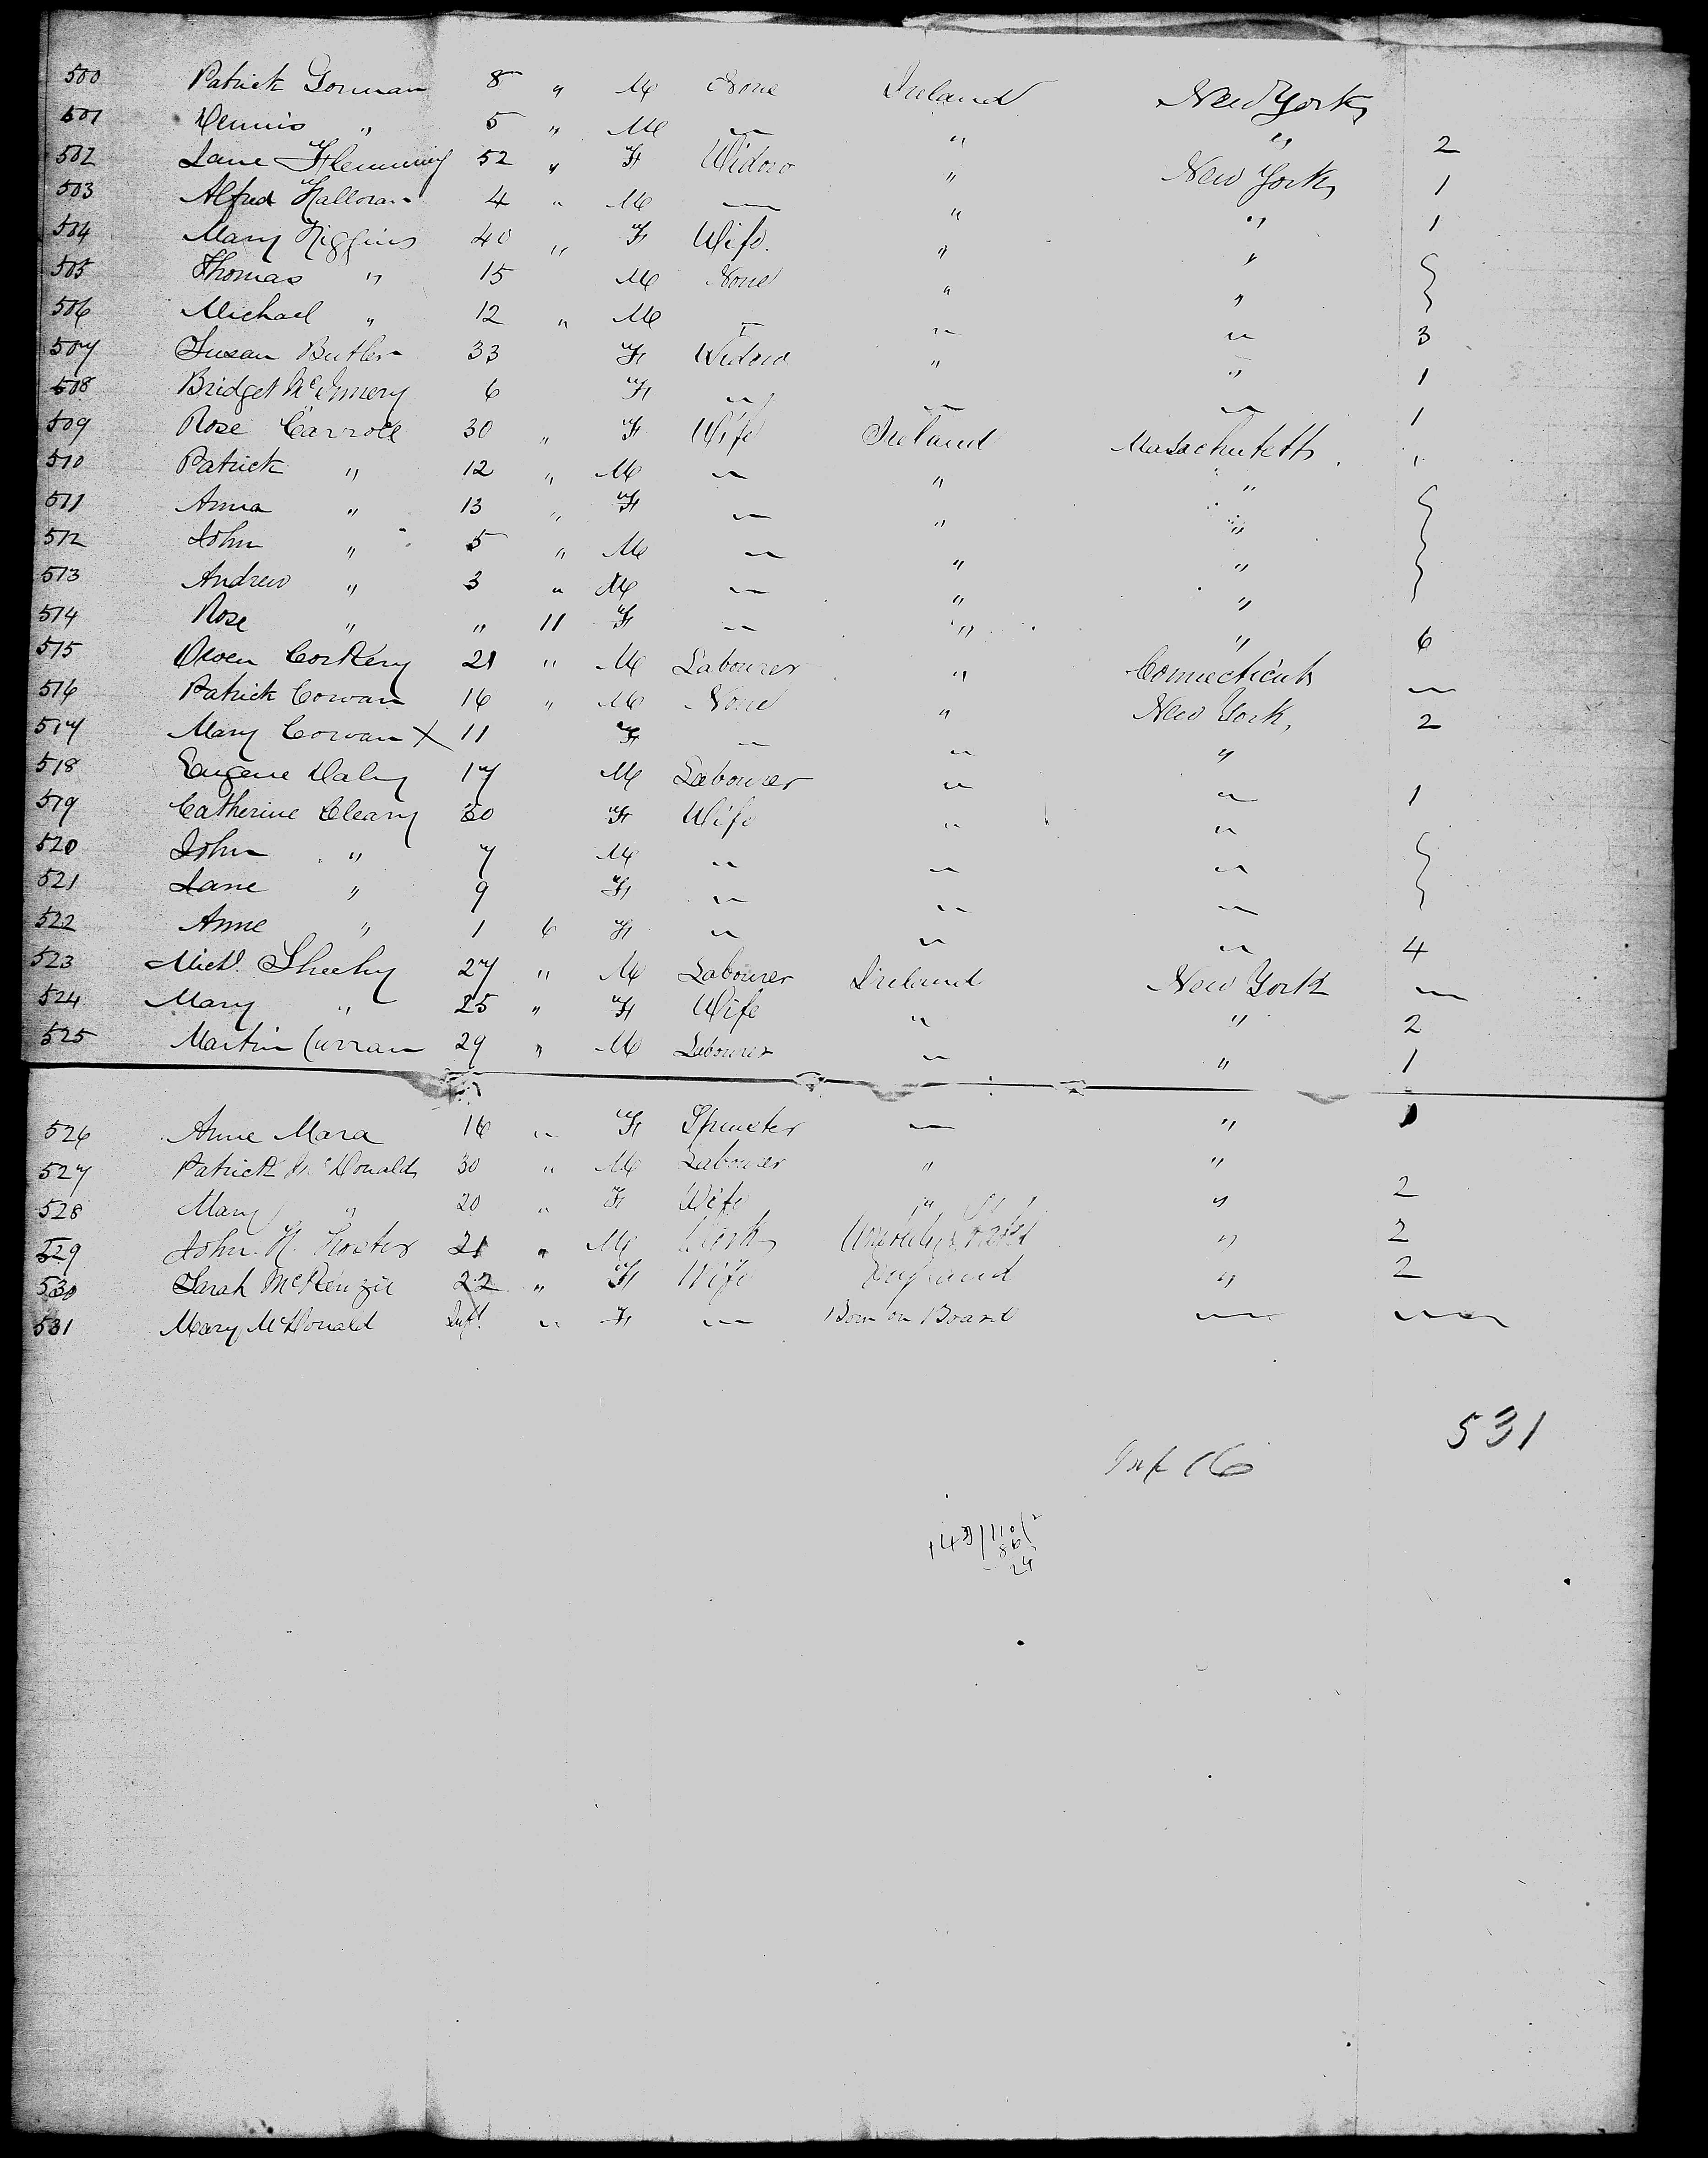 500 Patrick Gorman 8 " M None Ireland New York
501 Dennis " 5 " M — " " 2
502 Jane Flemming 52 " F Widow " New York 1
503 Alfred Halloran 4 " M — " " 1
504 Mary Higgins 40 " F Wife " "
505 Thomas " 15 M None " "
506 Michael " 12 " M — " " 3
507 Susan Butler 33 F Widow " " 1
508 Bridget 6 F " " " 1
509 Rose Carroll 30 " F Wife Ireland Massachusetts
510 Patrick " 12 " M " " "
511 Anna " 13 " F " " "
512 John " 5 " M " " "
513 Andrew " 3 " M " " "
514 Rose " " 11 F " " " 6
515 Owen Corkery 21 " M Labourer " Connecticut —
516 Patrick Cowan 16 " M None " New York 2
517 Mary Cowan X 11 F " " "
518 Eugene Daly 17 M Labourer " " 1
519 Catherine Cleary 30 F Wife " "
520 John " 7 M " " "
521 Jane " 9 F " " "
522 Anne " 1 6 F " " " 4
523 Michl. Sheehy 27 " M Labourer Ireland New York —
524 Mary " 25 " F Wife " " 2
525 Martin Curran 29 " M Labourer " " 1
526 Anne Mara 16 " F Spinster — " 1
527 Patrick McDonald 30 " M Labourer " "
528 Mary " 20 " F Wife " " 2
529 John H. 21 " M Clerk United States " 2
530 Sarah McKenzie 22 " F Wife England " 2
531 Mary McDonald Inft. " F — Born on Board — —
531
Inf 16